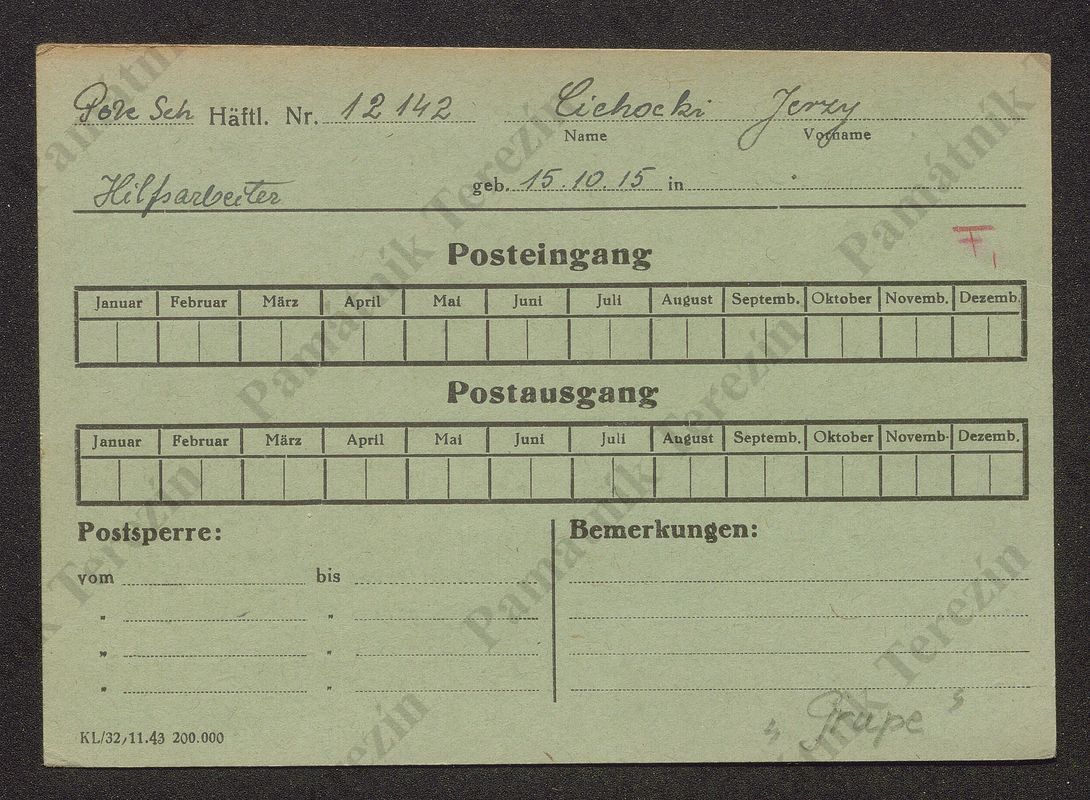 Pole Sch Häftl. Nr. 12 142 Cichocki Jerzy
Name Vorname
Hilfsarbeiter geb. 15.10.15 in
Posteingang
Januar Februar März April Mai Juni Juli August Septemb. Oktober Novemb. Dezemb.
Postausgang
Januar Februar März April Mai Juni Juli August Septemb. Oktober Novemb. Dezemb.
Postsperre: Bemerkungen:
vom bis
" "
" "
" "
KL/32/11.43 200.000
Památník Terezín